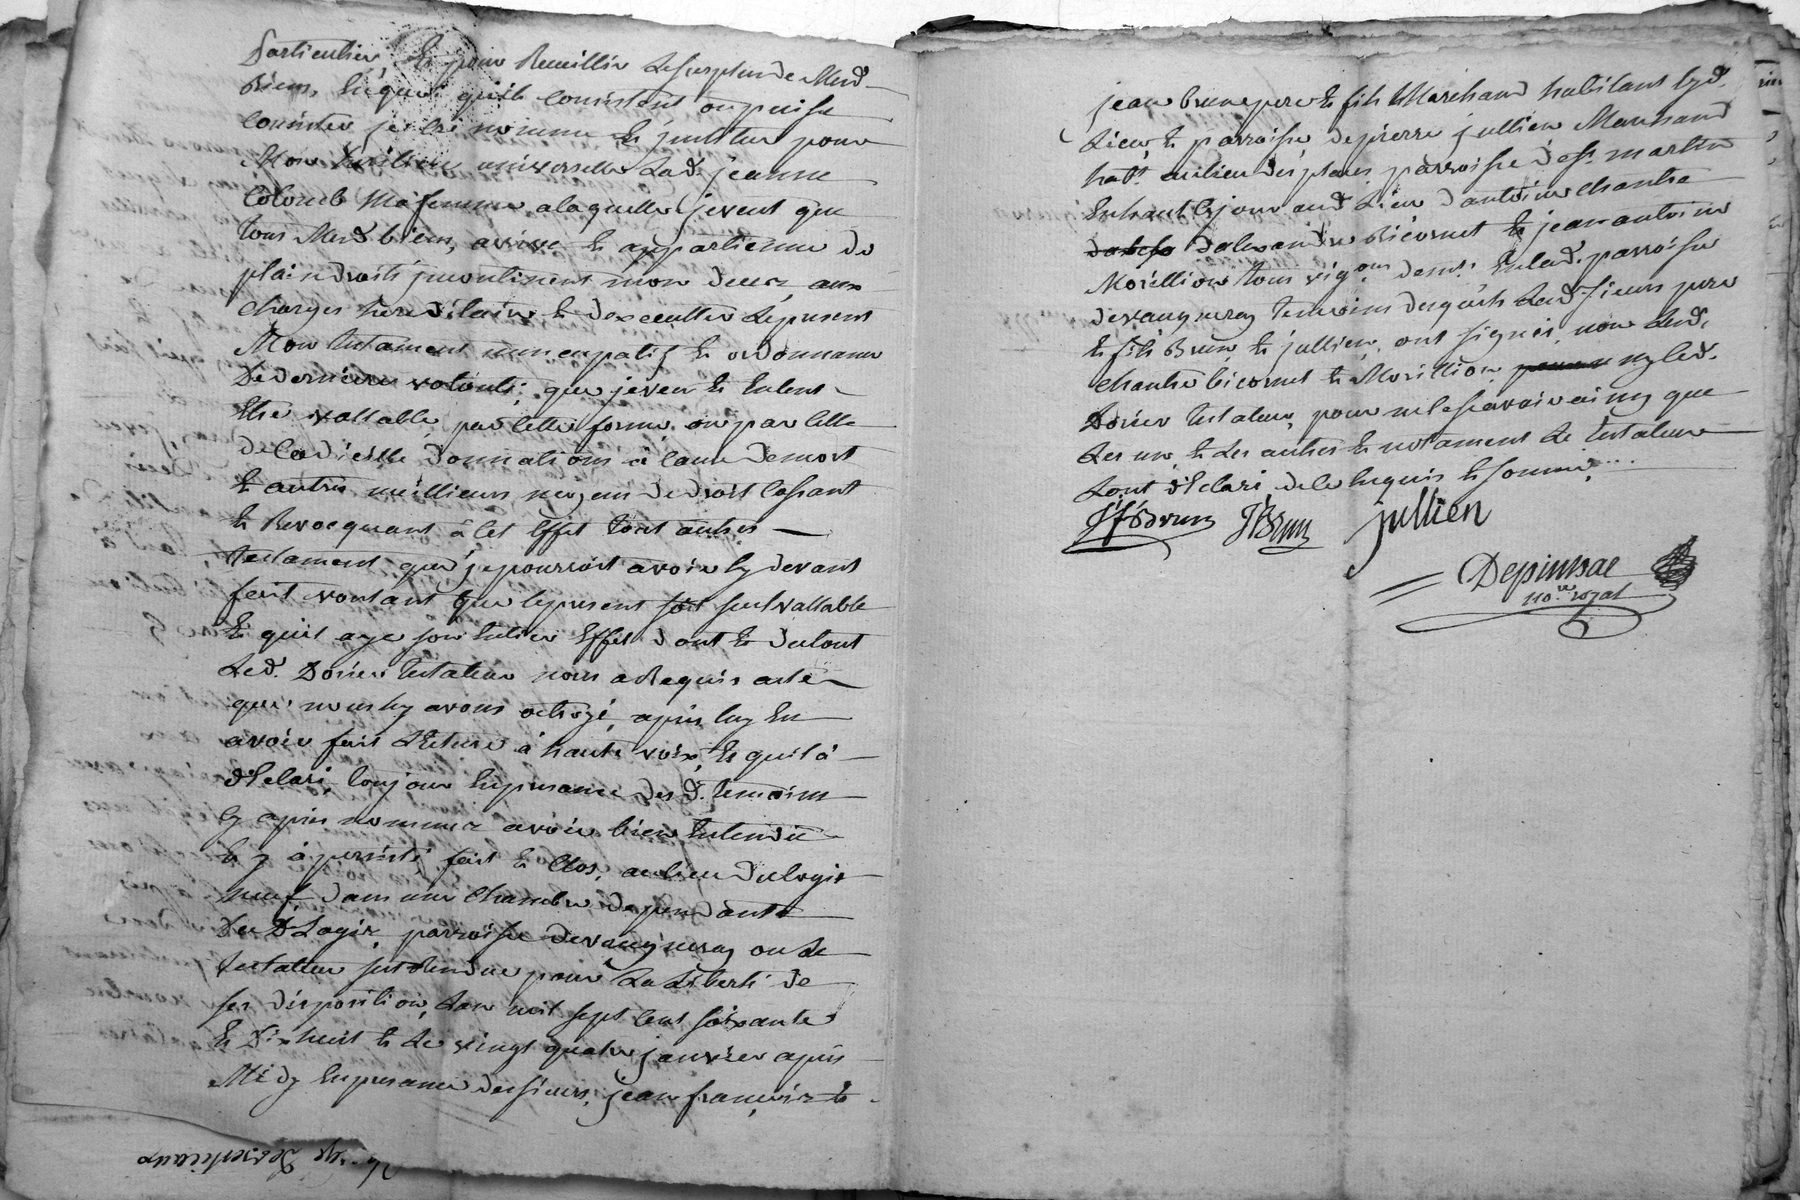 Particulier, Et pour Recuillir Lesurplus de Mesd.
Biens, Enquoi quils consistent ou puisse
Consister je lai nommé Et jnstitue pour
Mon héritiere universelle Lad. jeanne
Colomb Mafemme alaquelle jeveut que
tous Mesd biens, arrive Et appartienne de
plain droit jncontinent mon deces, aux
Charges hereditaire Et dexecutter Lepresent
Mon testament nuncupatif Et ordonnance
De derniere volonté, que jeveu Et Entent
Etre vallable par cette forme, ou par Celle
de Codicille donnations à Cause demort
Et autres meillieurs moyens de droit Cassant
Et Revocquant à Cet Effet tout autres
testament que jepourroit avoir Cy devant
fait voulant que Lepresent soit seul vallable
Et quil aye son Entier Effet dont Et dutout
Led. Dorier testateur nous aRequis acte
que nousluy avons octroyé, apres luy En
avoir fait Lecture à haute voix, Et quil à
declaré, toujour Enpresance des d. temoins
Cy apres nommez avoir bien Entendû
Et y à persisté, fait Et Clos, aulieu dulogis
neuf, dans une Chambre dependante
du d Logis, parroisse devaugneray ou Le
testateur sest Rendue pour La Liberté de
ses disposition, Lan mil sept Cent soixante
Et Dixhuit Et Le vingt quatre janvier apres
Midy Enpresance dessieurs, jean françois Et
jean brun pere Et fils Marchand habitant Cyd.
Lieu Et parroisse, depierre jullien Marchand
habt. aulieu des places parroisse de st. martin
Enhaut Cejour aud Lieu dantoine Chantre
dalexandre Bicornet Et jean antoine
Morillion tous vigons demt. Enlad. parroisse
devaugneray temoins desquels Lesd. sieurs pere
Et fils Brun Et jullien, ont signés, non Lesd.
Chantre bicornet Et Morillion, ny led.
Dorier testateur, pour nelesçavoir ainsy que
Les uns Et Les autres Et notament Le testateur
Lont declaré, dele Enquis Et sommé
JfBrun JBrun jullien
Depinssac
nore. royal